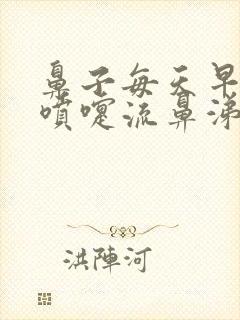 鼻子每天早
噴嚏流鼻涕
洪陣河